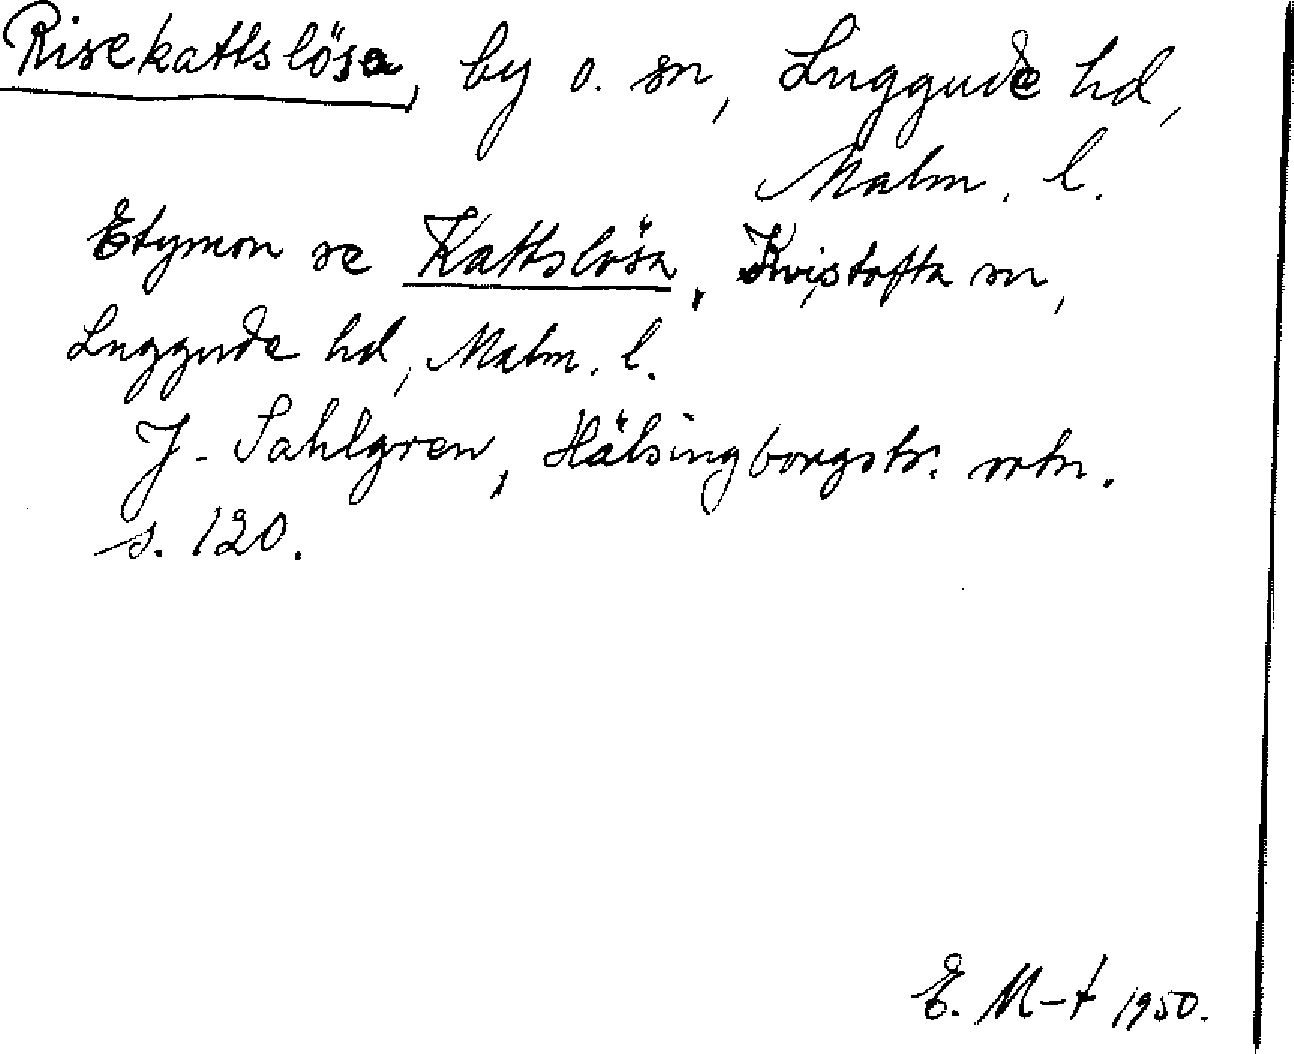 Risekattslösa, by o. sn, Luggude hd,
Malm. l.
Etymon se Kattslösa, Kvistofta sn,
Luggude hd, Malm. l.
J. Sahlgren, Hälsingborgstr. ortn.
s. 120.
E. M-t 1950.